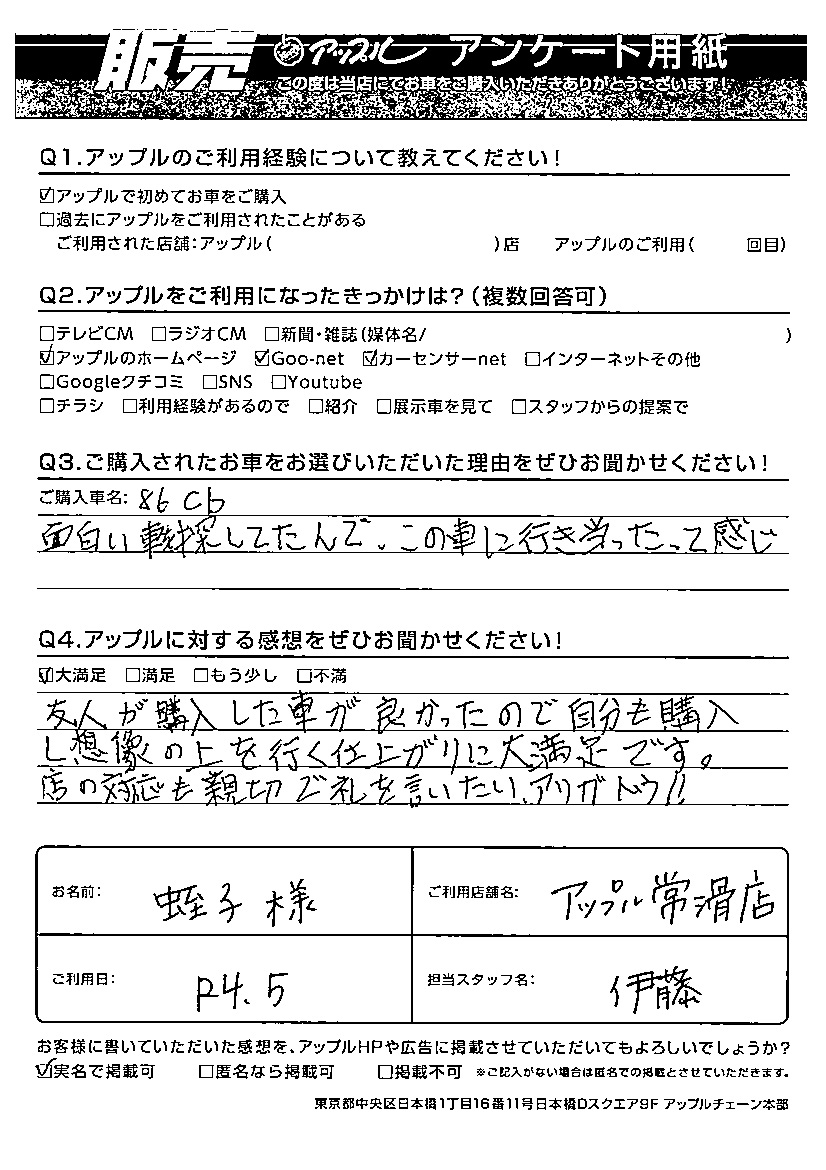 販売 アップル アンケート用紙
この度は当店にてお車をご購入いただきありがとうございます！
Q1.アップルのご利用経験について教えてください！
☑アップルで初めてお車をご購入
□過去にアップルをご利用されたことがある
ご利用された店舗：アップル（　）店　アップルのご利用（　回目）
Q2.アップルをご利用になったきっかけは？（複数回答可）
□テレビCM □ラジオCM □新聞・雑誌（媒体名/　）
☑アップルのホームページ ☑Goo-net ☑カーセンサーnet □インターネットその他
□Googleクチコミ □SNS □Youtube
□チラシ □利用経験があるので □紹介 □展示車を見て □スタッフからの提案で
Q3.ご購入されたお車をお選びいただいた理由をぜひお聞かせください！
ご購入車名：86 cb
面白い車探してたんで、この車に行き当ったって感じ
Q4.アップルに対する感想をぜひお聞かせください！
☑大満足 □満足 □もう少し □不満
友人が購入した車が良かったので自分も購入
し想像の上を行く仕上がりに大満足です。
店の対応も親切で礼を言いたい、アリガトウ!!
お名前： 蛭子様
ご利用店舗名： アップル常滑店
ご利用日： R4.5
担当スタッフ名： 伊藤
お客様に書いていただいた感想を、アップルHPや広告に掲載させていただいてもよろしいでしょうか？
☑実名で掲載可 □匿名なら掲載可 □掲載不可 ※ご記入がない場合は匿名での掲載とさせていただきます。
東京都中央区日本橋1丁目16番11号日本橋Dスクエア9F アップルチェーン本部